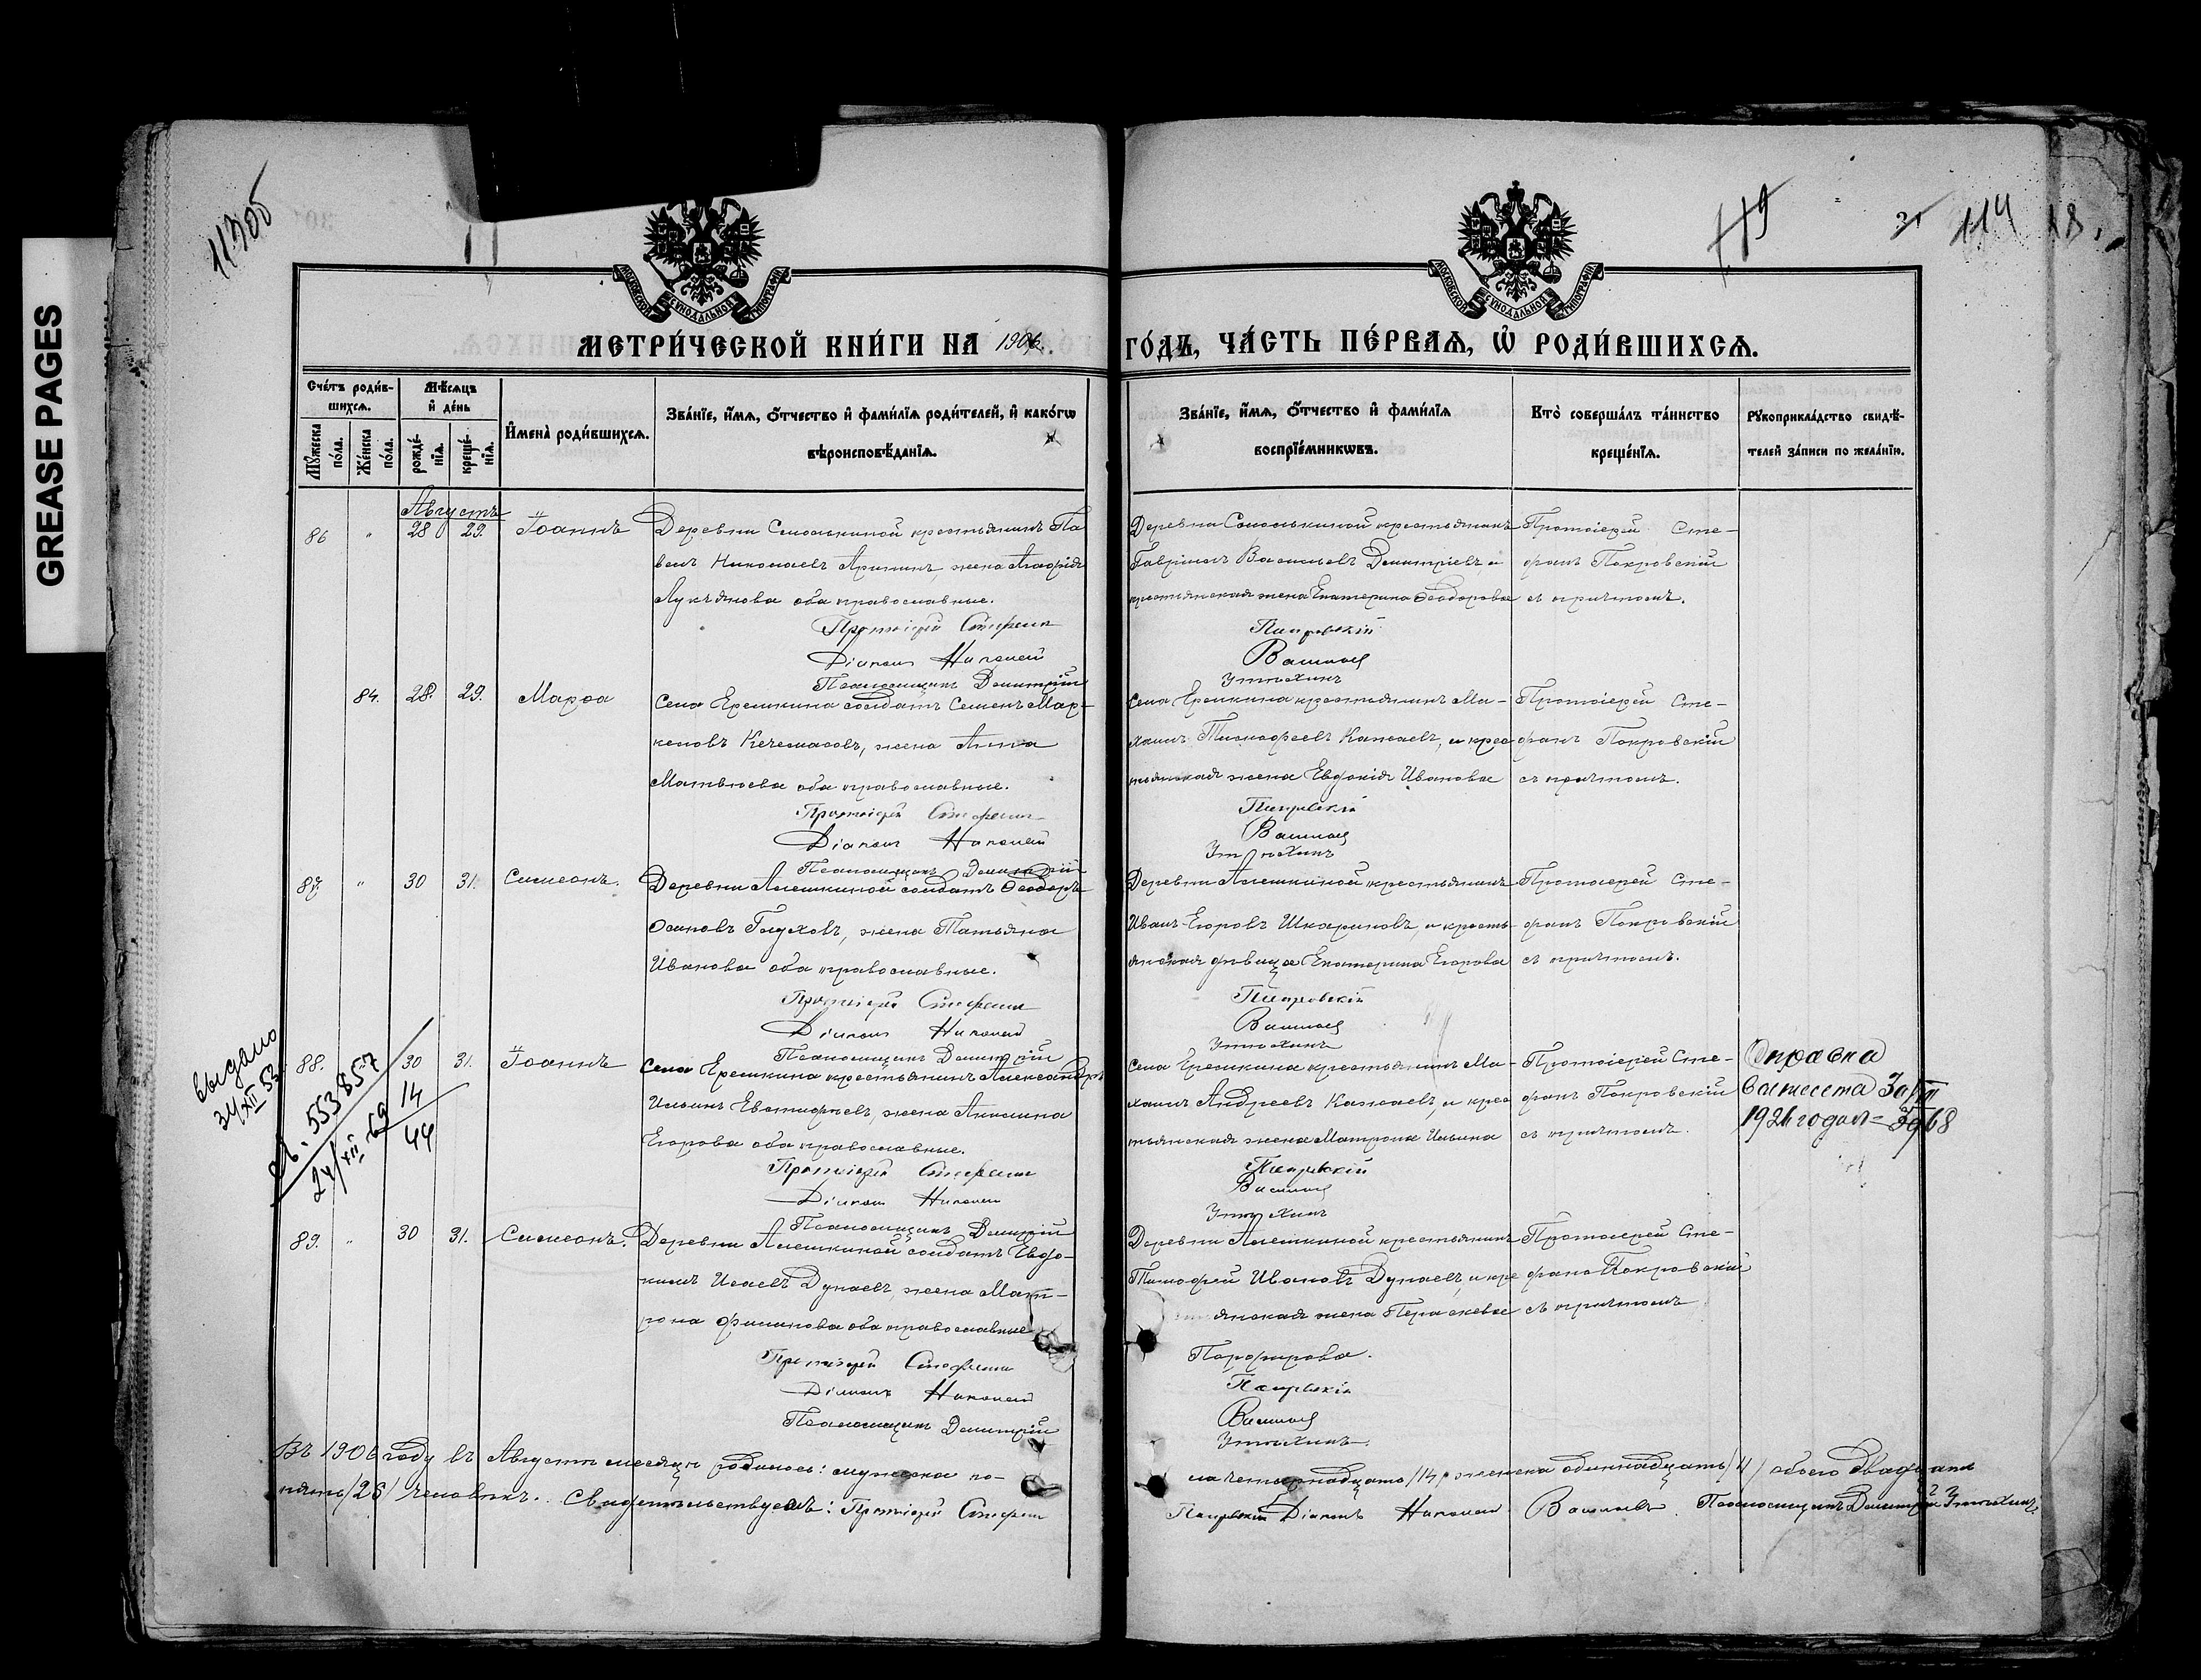 GREASE PAGES
113об
119
114
18.
МОСКОВСКОЙ СѴНОДАЛЬНОЙ ТИПОГРАФІИ
МОСКОВСКОЙ СѴНОДАЛЬНОЙ ТИПОГРАФІИ
МЕТРИ́ЧЕСКОЙ КНИ́ГИ НА 1906.
ГО́ДЪ, ЧА́СТЬ ПЕ́РВАѦ, Ѡ҆ РОДИ́ВШИХСѦ.
Сче́тъ роди́в-
шихсѧ.
Мꙋ́жеска по́ла.
Же́нска по́ла.
Мѣ́сѧцъ
и҆ де́нь
рожде́-
нїѧ.
креще́-
нїѧ.
И҆мена̀ роди́вшихсѧ.
Зва́нїе, и҆́мѧ, ѻ҆́тчество и҆ фамі́лїѧ роди́телей, и҆ како́гѡ
вѣроисповѣ́данїѧ.
Зва́нїе, и҆́мѧ, ѻ҆́тчество и҆ фамі́лїѧ
воспрїе́мникѡвъ.
Кто̀ соверша́лъ та́инство
креще́нїѧ.
Рꙋкоприкла́дство свидѣ́-
телей за́писи по жела́нїю.
Августъ
86 " 28 29. Іоаннъ
Деревни Самолькиной крестьянинъ Па
велъ Николаевъ Аринин, жена Агафія
Лукьянова оба православные.
Протоіерей Стефанъ
Діаконъ Николай
Псаломщикъ Димитрій
Деревни Самолькиной крестьянинъ
Гавріилъ Васильевъ Димитріевъ, и
крестьянская жена Екатерина Ѳеодорова
Покровскій
Васильевъ
Утѣхинъ
Протоіерей Сте-
фанъ Покровскій
съ причтомъ.
84. 28. 29. Марѳа
Села Еремкина солдатъ Семенъ Мар-
келовъ Кечемасовъ, жена Анна
Матвѣева оба православные.
Протоіерей Стефанъ
Діаконъ Николай
Псаломщикъ Димитрій
Села Еремкина крестьянинъ Ма-
хаилъ Тимофеевъ Кажаевъ, и крес
тьянская жена Евдокія Иванова
Покровскій
Васильевъ
Утѣхинъ
Протоіерей Сте-
фанъ Покровскій
съ причтомъ.
87. " 30 31. Симеонъ.
Деревни Алешкиной солдатъ Ѳеодоръ
Осиповъ Глуховъ, жена Татьяна
Иванова оба православные.
Протоіерей Стефанъ
Діаконъ Николай
Псаломщикъ Димитрій
Деревни Алешкиной крестьянинъ
Иванъ Егоровъ Шкариновъ, и кресть
янская дѣвица Екатерина Егорова
Покровскій
Васильевъ
Утѣхинъ
Протоіерей Сте-
фанъ Покровскій
съ причтомъ.
выдано
31/XII 53.
88. 30 31. Іоаннъ
св. 553857
24/XII 69 14
44
Села Еремкина крестьянинъ Александръ
Ильинъ Евстифѣевъ, жена Акилина
Егорова оба православные.
Протоіерей Стефанъ
Діаконъ Николай
Псаломщикъ Димитрій
Села Еремкина крестьянинъ Ма-
хаилъ Андреевъ Кажаевъ, и крес
тьянская жена Матрона Ильина
Покровскій
Васильевъ
Утѣхинъ
Протоіерей Сте-
фанъ Покровскій
съ причтомъ.
Справка
1926 года 3968
89. " 30 31. Симеонъ.
Деревни Алешкиной солдатъ Евдо-
кимъ Исаевъ Дунаевъ, жена Мат-
рона Филипова оба православные
Протоіерей Стефанъ
Діаконъ Николай
Псаломщикъ Димитрій
Деревни Алешкиной крестьянинъ
Тимофей Ивановъ Дунаевъ, и кре
янская жена Параскева
Порфирова.
Покровскій
Васильевъ
Утѣхинъ.
Протоіерей Сте-
фанъ Покровскій
съ причтомъ
Въ 1906 году въ Августѣ месяцѣ родилось: мужеска по-
ла четырнадцать /14/ женска одиннадцать /11/ обоего двадцать
пять /25/ человѣкъ. Свидѣтельствуемъ: Протоіерей Стефанъ
Покровскій Діаконъ Николай Васильевъ. Псаломщикъ Димитрій Утѣхинъ.